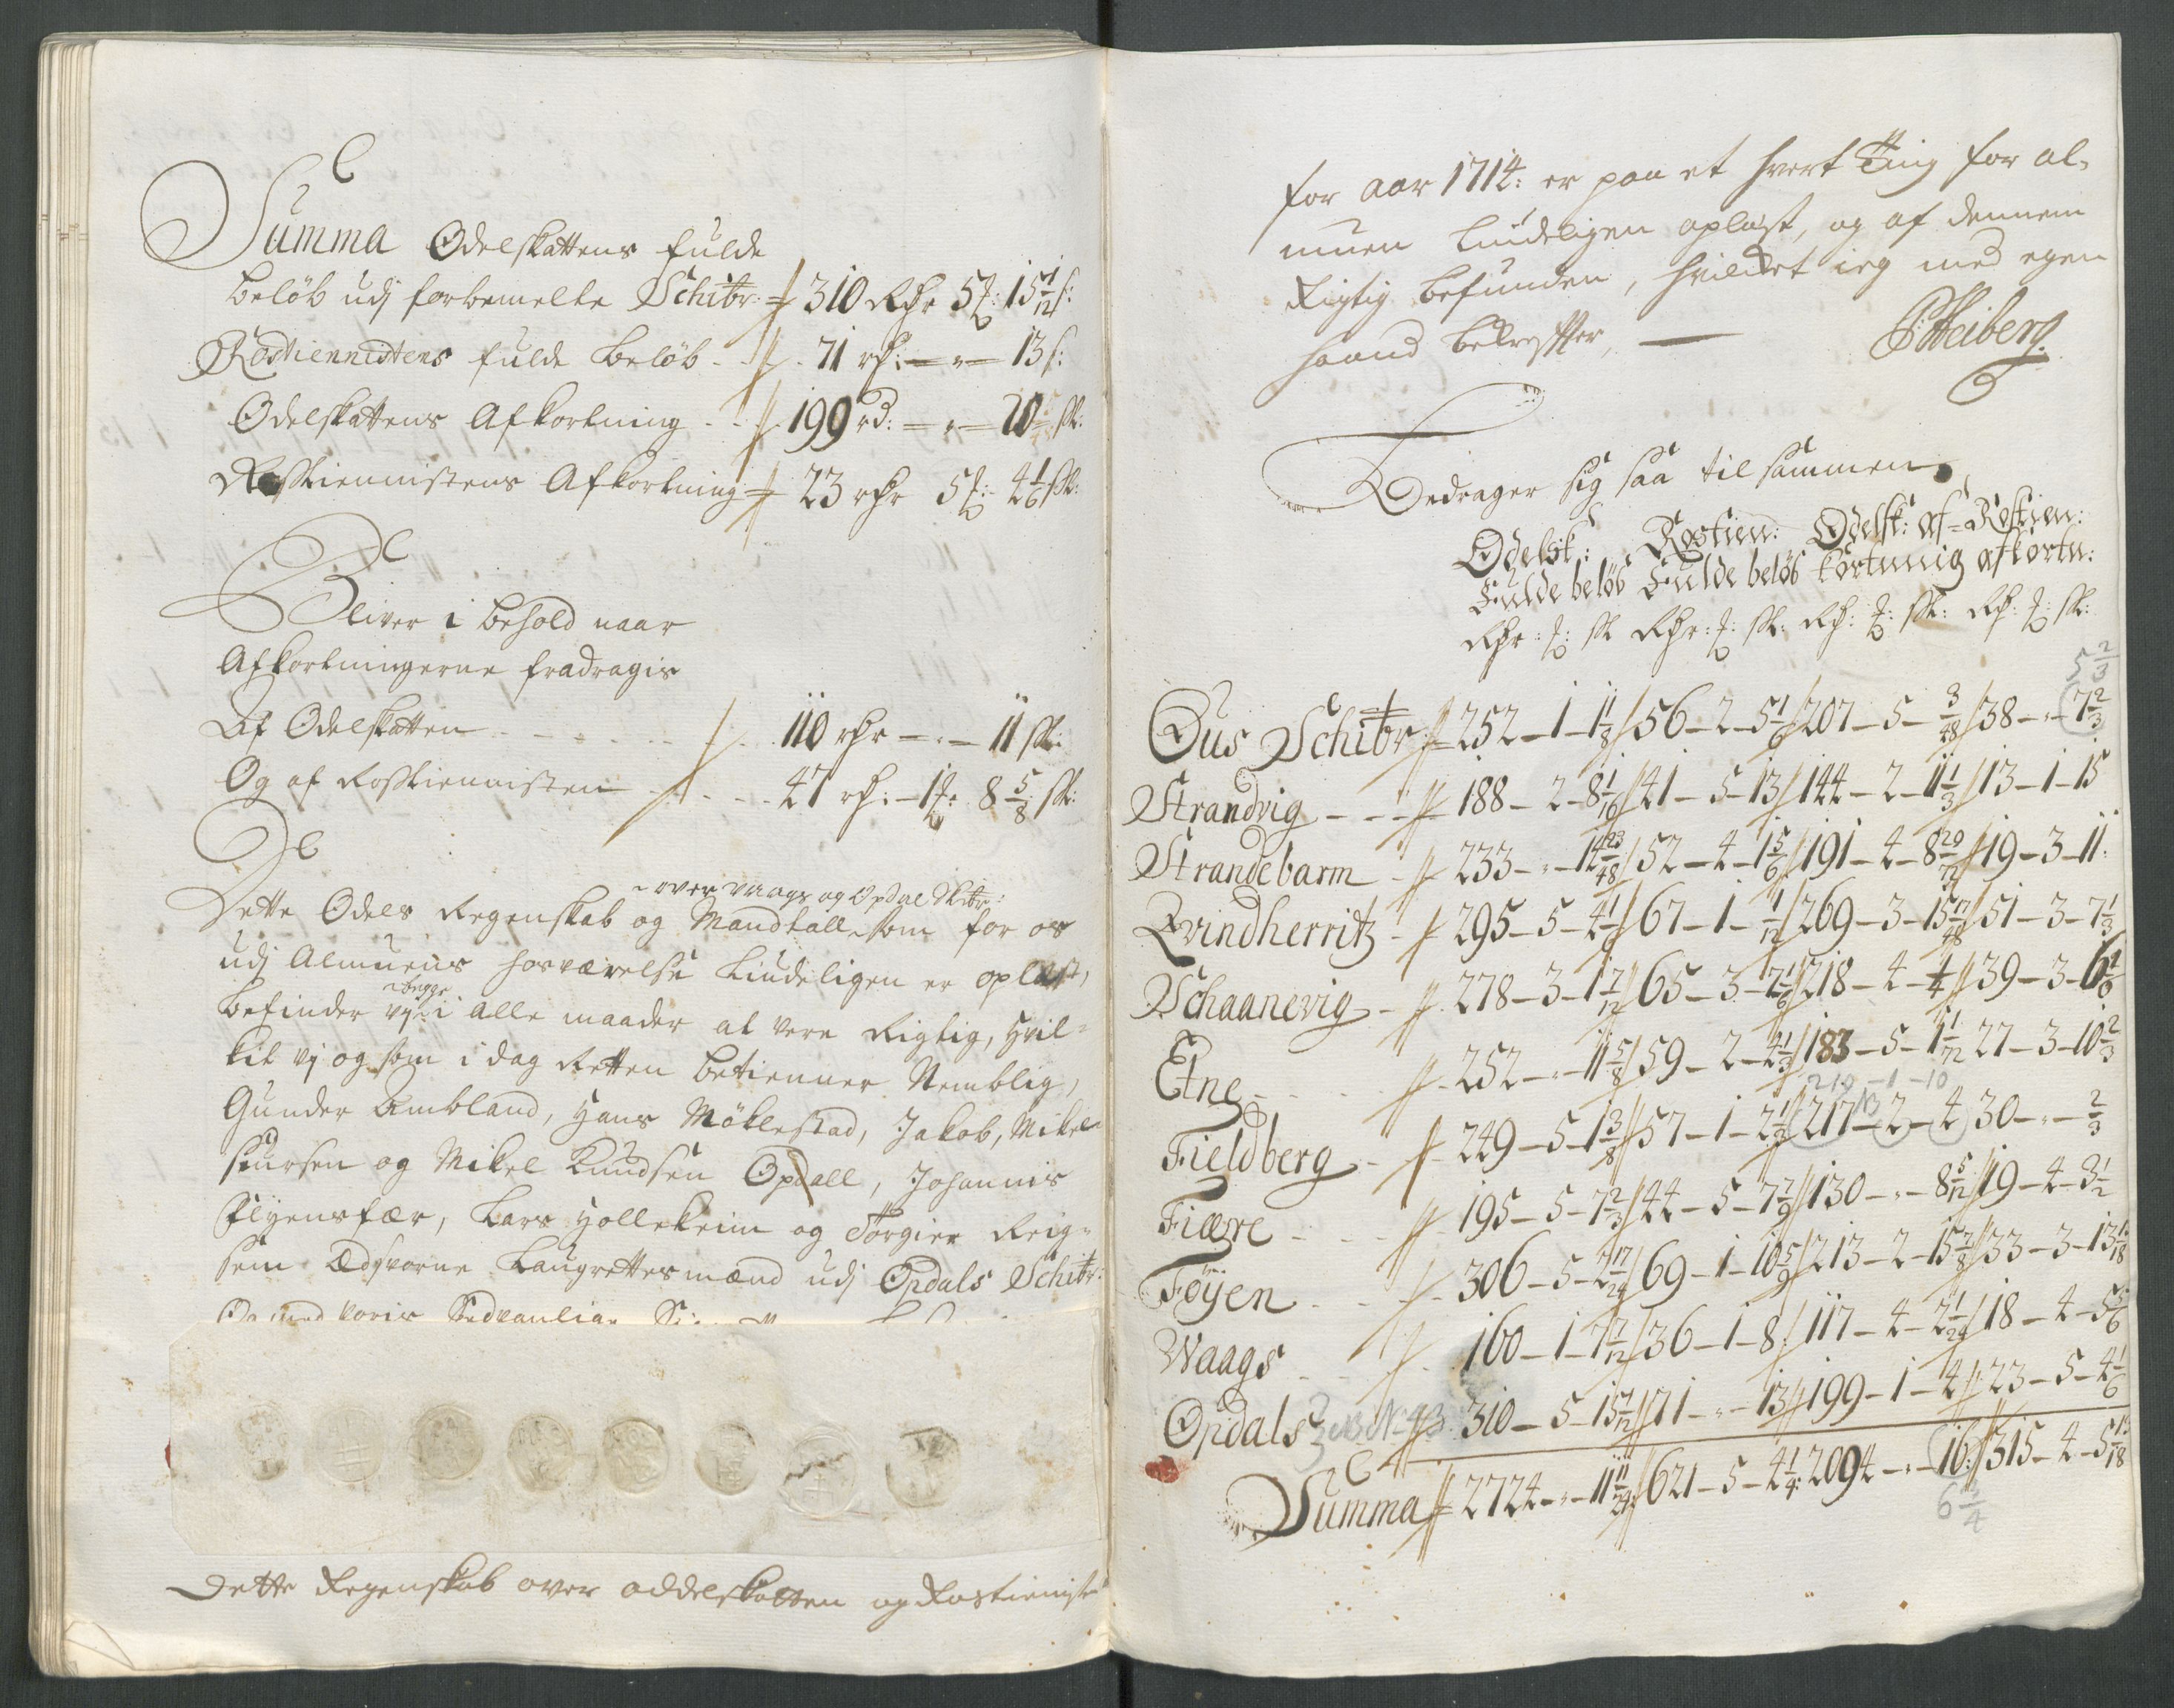 Summa Odelskattens fulde
beløb udj forbemelte Schibr: 310 Rdr 5 15 1/12 s:
Rostiennistens fulde beløb - - 71 rd: — " — 13 s:
Odelskattens Afkortning - - 199 rd: — " — 20 sk:
Rostiennistens Afkortning 23 rdr 5 4 1/6 sk:
Bliver i behold naar
Afkortningerne fradragis
Af Odelskatten - - - 110 rdr — " — 11 sk:
Og af Rostiennisten - - - 47 rd: — 1 8 5/8 sk:
over Waags og Opdal Skibr:
Dette Odels Regenskab og Mandtall som for os
udj Almuens hosværelse liudeligen er oplæst,
begge
befinder vj i alle maader at vere Rigtig, hvil-
kit vj og som i dag Retten betienner Nemblig,
Gunder Ambland, Hans Møklestad, Jakob, Mikel
siursen og Mikel Knudsen Opdall, Johannis
Flyensfær, Lars Hollekeim og Torgier Reig-
sem Edsvorne Laugrettesmænd udj Opdals Schibr:
Og med voris Sedvanlige
Dette Regenskab over oddelskatten og Rostieniste
for aar 1714: er paa et hvert Ting for al-
muen liudeligen oplæst, og af dennem
Rigtig befunden, hvilcket ieg med egen
haand bekreffter, — PHeiberg
Bedrager sig saa tilsammen,
Odelsk: Rostien: Odelsk: af- Rostien:
Fulde beløb Fulde beløb kortning afkortn:
Rdr: sk Rdr: sk: Rd: sk: Rd: sk:
5 2/3
Ous Schibr 252 — 1 — 1 1/8 56 — 2 — 5 1/6 207 — 5 — 3/48 38 — " — 7 2/3
Strandvig - - - 188 — 2 — 8 1/16 41 — 5 — 13 144 — 2 — 11 1/3 13 — 1 — 15
Strandebarm - 233 — " — 14 23/48 52 — 4 — 1 5/6 191 — 4 — 8 29/72 19 — 3 — 11:
Qvindherritz - 295 — 5 — 4 1/6 67 — 1 — 1/12 269 — 3 — 15 17/48 51 — 3 — 7 1/3
Schaanevig - 278 — 3 — 1 7/12 65 — 3 — 2 1/6 218 — 4 — 1/4 39 — 3 — 6 1/6
Etne - - - 252 — " — 11 5/8 59 — 2 — 4 1/3 183 — 5 — 1 1/72 27 — 3 — 10 2/3
210 — 1 — 10
Fieldberg - 249 — 5 — 1 3/8 57 — 1 — 2 1/3 217 — 2 — 4 30 — " — 2/3
Fiære - - - 195 — 5 — 7 2/3 44 — 5 — 7 7/9 130 — " — 8 5/12 19 — 4 — 3 1/2
Føyen - - - 306 — 5 — 2 17/24 69 — 1 — 10 5/9 213 — 2 — 15 7/8 33 — 3 — 13 1/18
Waags - - - 160 — 1 — 7 7/12 36 — 1 — 8 117 — 4 — 2 1/24 18 — 4 — 5 5/6
Opdals 310 — 5 — 15 7/12 71 — " — 13 199 — 1 — 4 23 — 5 — 4 1/6
Summa 2724 — " — 11 11/24 621 — 5 — 4 1/4 2094 — " — 16: 315 — 4 — 5 13/18
6 3/4